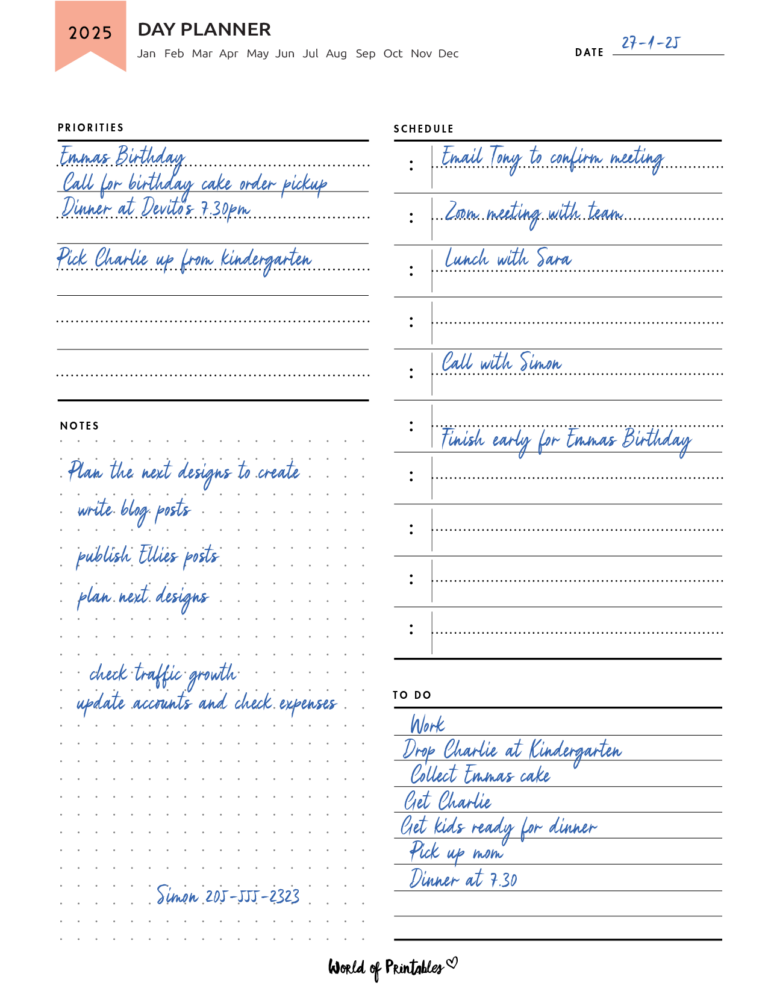 2025
DAY PLANNER
Jan Feb Mar Apr May Jun Jul Aug Sep Oct Nov Dec
DATE 27-1-25
PRIORITIES
Emmas Birthday
Call for birthday cake order pickup
Dinner at Devito's 7.30pm
Pick Charlie up from kindergarten
NOTES
Plan the next designs to create
write blog posts
publish Ellies posts
plan next designs
check traffic growth
update accounts and check expenses
Simon 205-555-2323
SCHEDULE
: Email Tony to confirm meeting
: Zoom meeting with team
: Lunch with Sara
:
: Call with Simon
: Finish early for Emmas Birthday
:
:
:
:
TO DO
Work
Drop Charlie at Kindergarten
Collect Emmas cake
Get Charlie
Get kids ready for dinner
Pick up mom
Dinner at 7.30
World of Printables